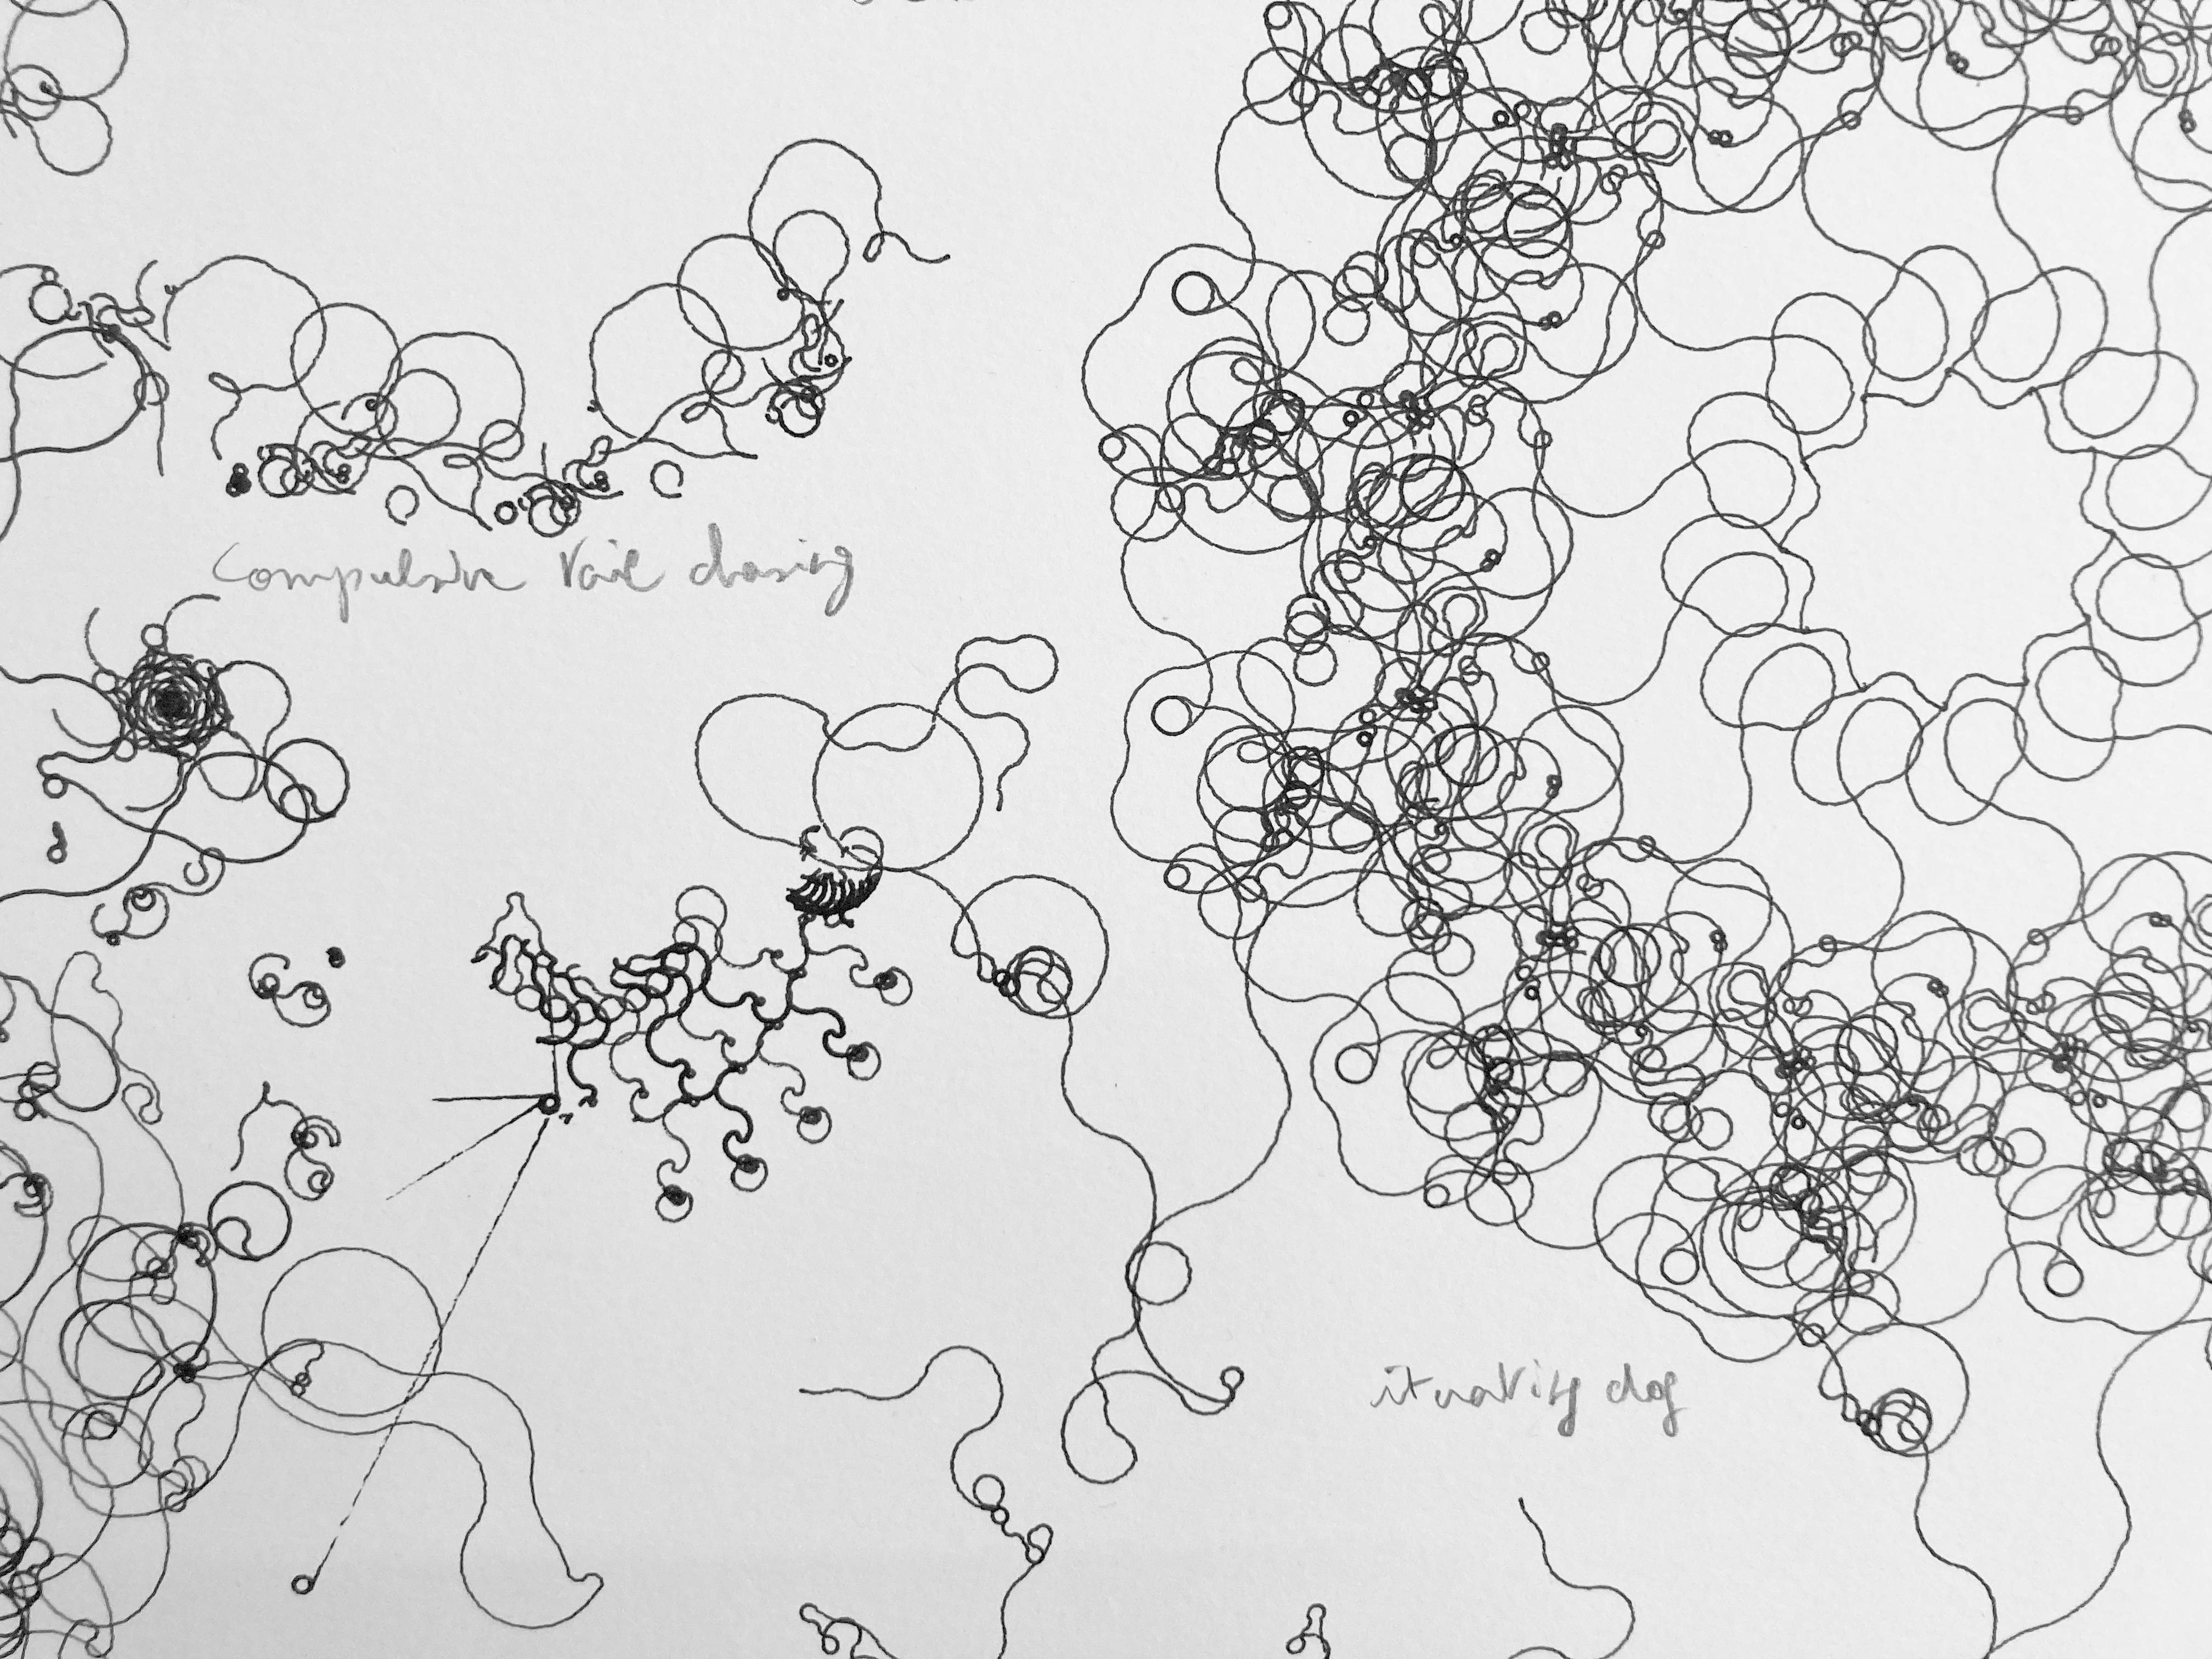 compulsive tail chasing
ituating dog